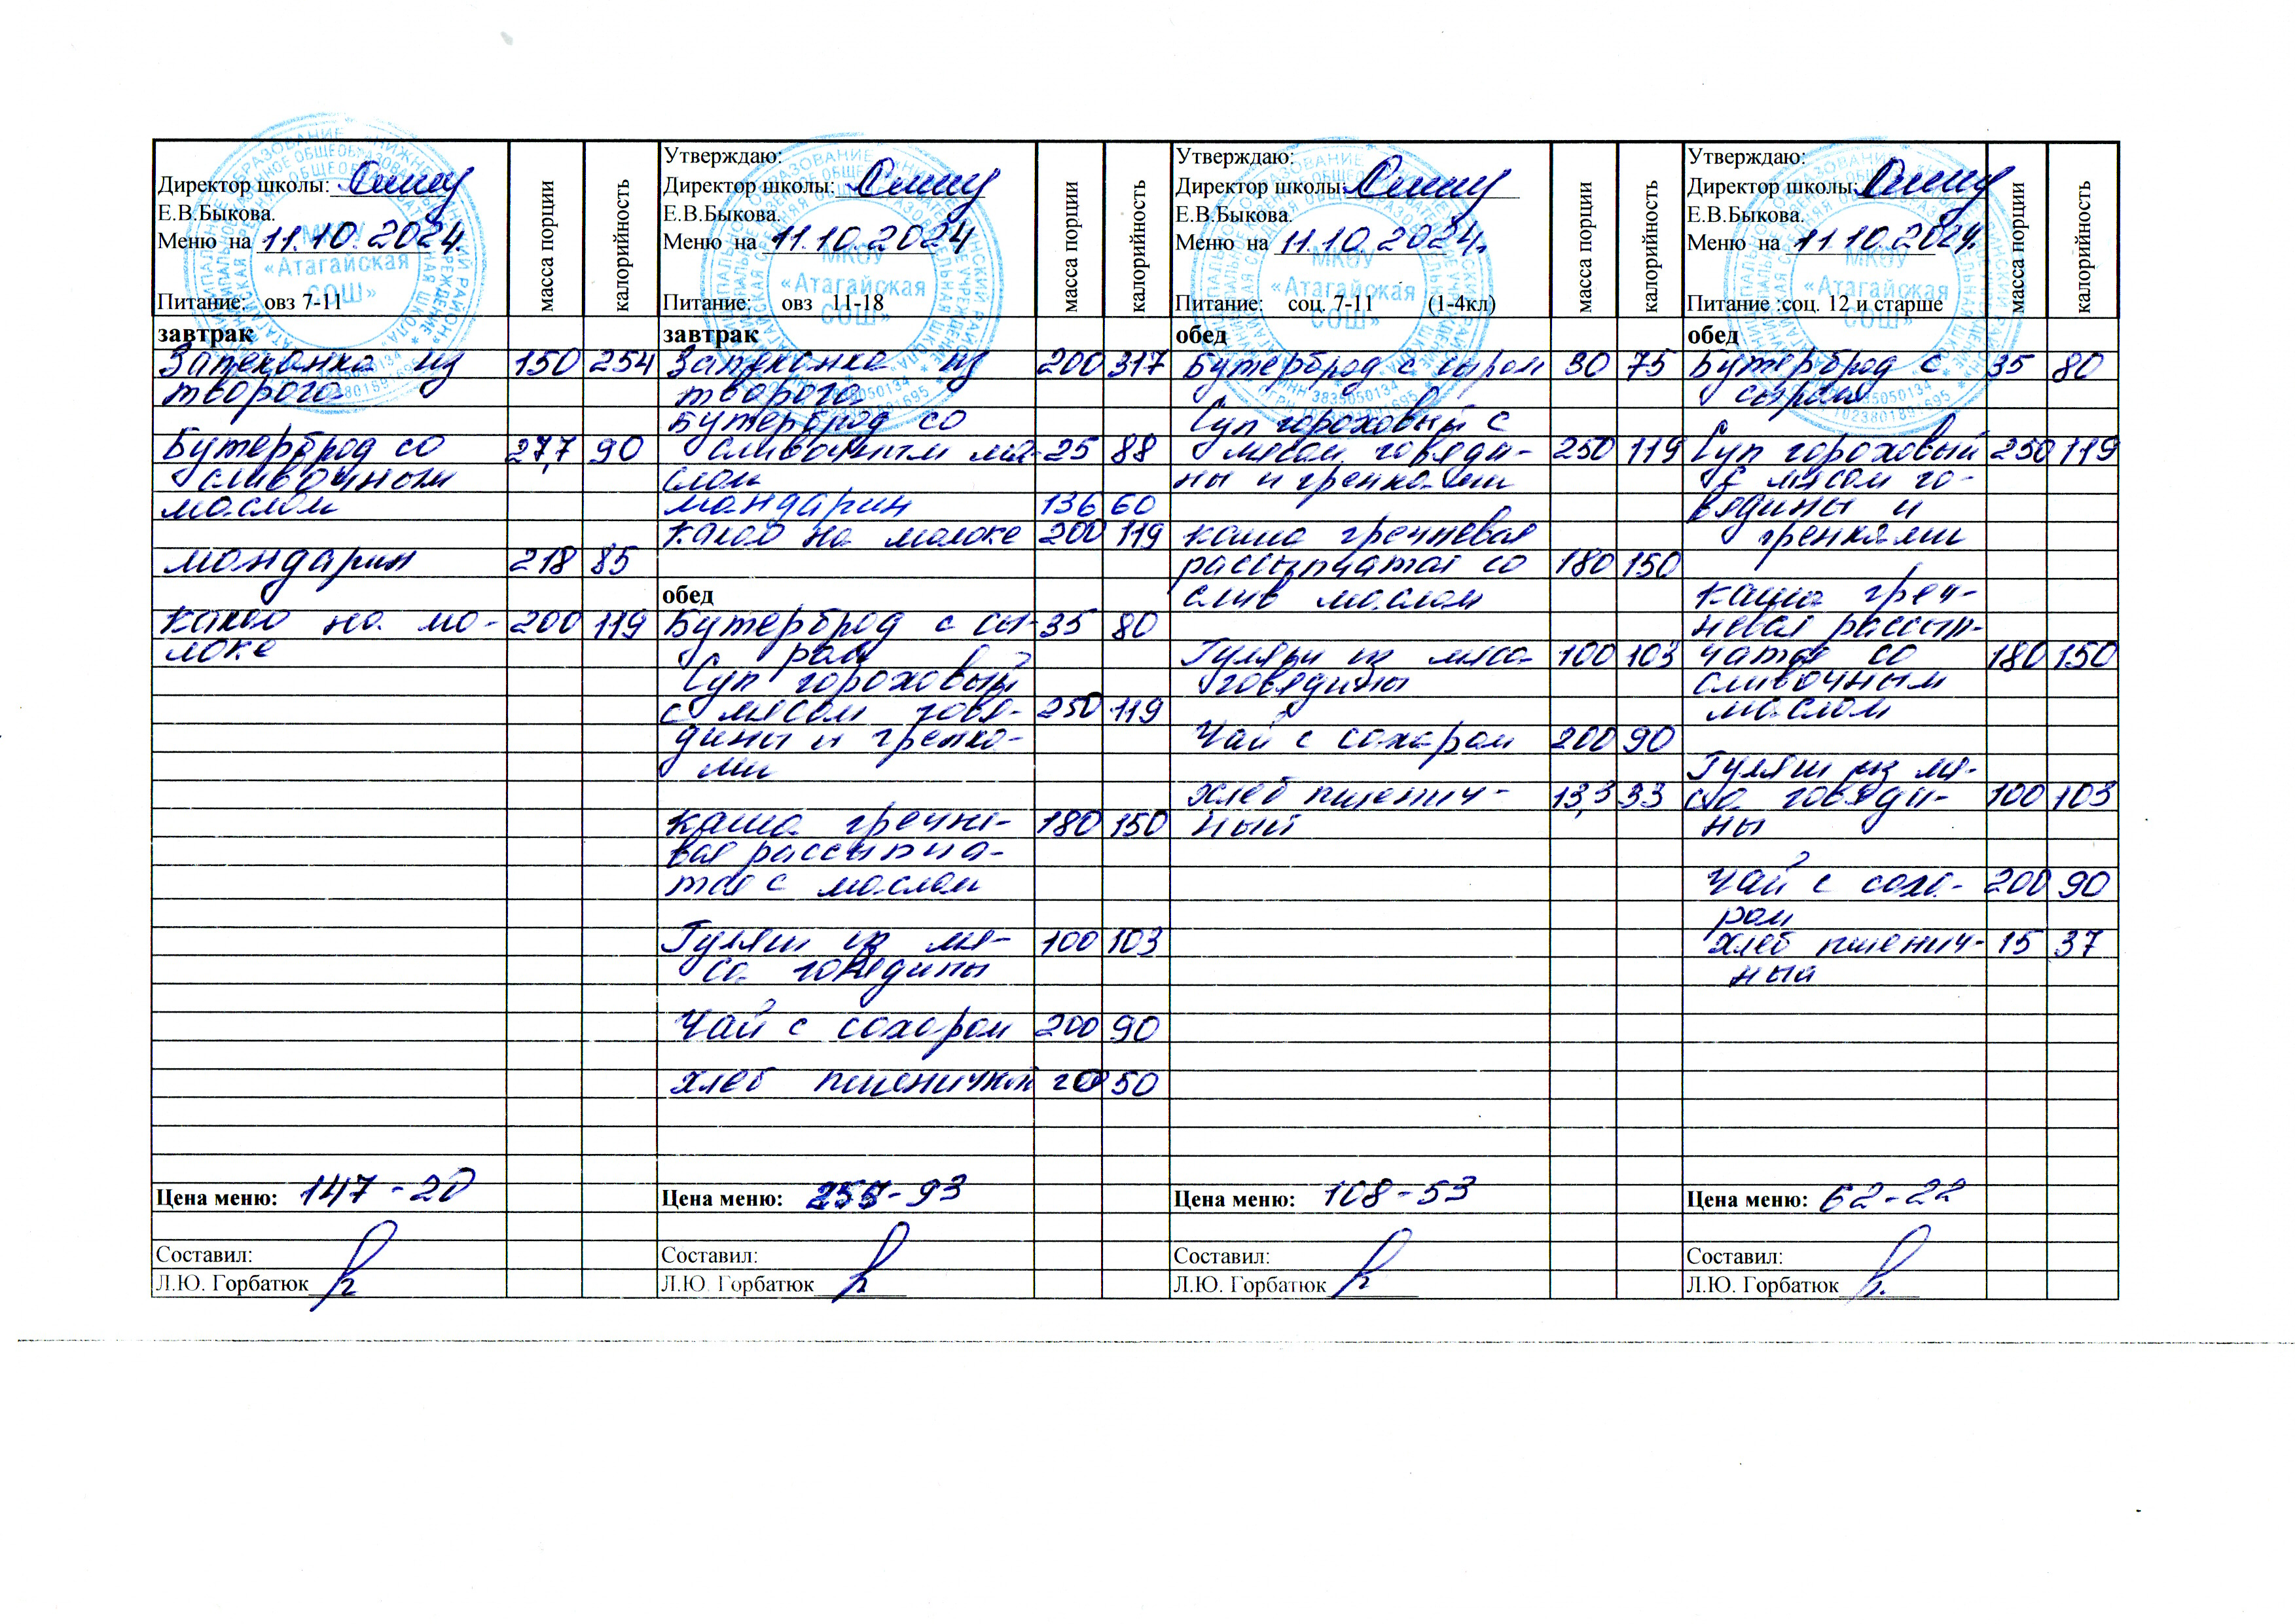 Директор школы:
Е.В.Быкова.
Меню на 11.10.2024.
Питание: овз 7-11
масса порции
калорийность
завтрак
Запеканка из 150 254
творога
Бутерброд со 27,7 90
сливочным
маслом
мандарин 218 85
какао на мо- 200 119
локе
Цена меню: 147-20
Составил:
Л.Ю. Горбатюк
Утверждаю:
Директор школы:
Е.В.Быкова.
Меню на 11.10.2024
Питание: овз 11-18
масса порции
калорийность
завтрак
Запеканка из 200 317
творога
Бутерброд со
сливочным ма- 25 88
слом
мандарин 136 60
какао на молоке 200 119
обед
Бутерброд с сы- 35 80
ром
Суп гороховый
с мясом говя- 250 119
дины и гренка-
ми
каша гречне- 180 150
вая рассыпча-
тая с маслом
Гуляш из мя- 100 103
са говядины
Чай с сахаром 200 90
хлеб пшеничный 20 50
Цена меню: 255-93
Составил:
Л.Ю. Горбатюк
Утверждаю:
Директор школы:
Е.В.Быкова.
Меню на 11.10.2024г.
Питание: соц. 7-11 (1-4кл)
масса порции
калорийность
обед
Бутерброд с сыром 30 75
Суп гороховый с
мясом говяди- 250 119
ны и гренками
каша гречневая
рассыпчатая со 180 150
слив маслом
Гуляш из мяса 100 103
говядины
Чай с сахаром 200 90
хлеб пшенич- 13,3 33
ный
Цена меню: 108-53
Составил:
Л.Ю. Горбатюк
Утверждаю:
Директор школы:
Е.В.Быкова.
Меню на 11.10.2024.
Питание :соц. 12 и старше
масса порции
калорийность
обед
Бутерброд с 35 80
сыром
Суп гороховый 250 119
с мясом го-
вядины и
гренками
каша греч-
невая рассып-
чатая со 180 150
сливочным
маслом
Гуляш из мя-
са говяди- 100 103
ны
Чай с саха- 200 90
ром
хлеб пшенич- 15 37
ный
Цена меню: 62-22
Составил:
Л.Ю. Горбатюк
МКОУ
«Атагайская
СОШ»
МКОУ
«Атагайская
СОШ»
МКОУ
«Атагайская
СОШ»
МКОУ
«Атагайская
СОШ»